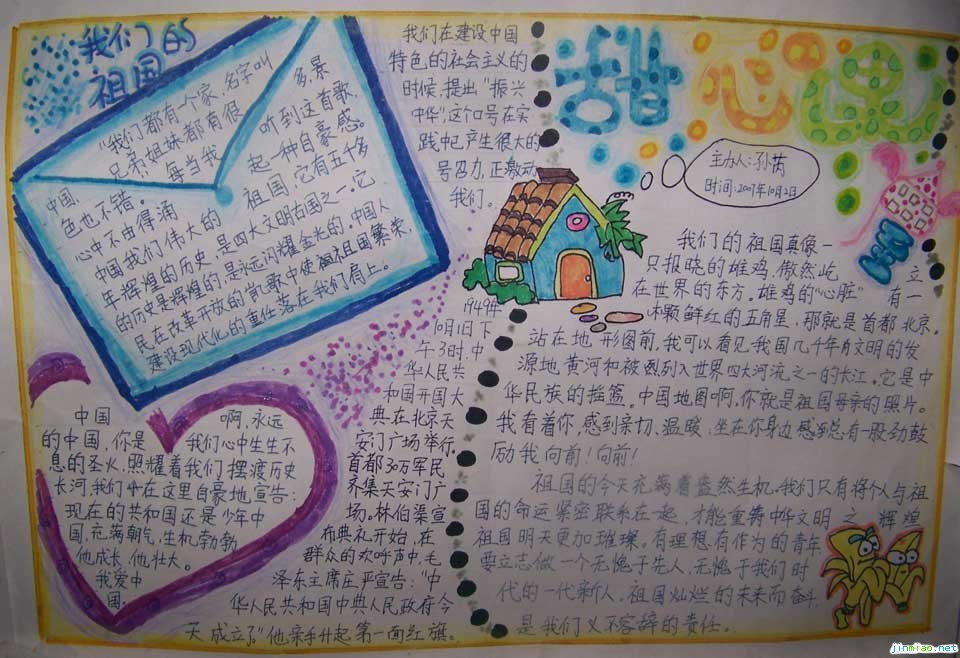 我们的
祖国
"我们都有一个家,名字叫
中国,兄弟姐妹都有很多景
色也不错。"每当我听到这首歌,
心中不由得涌起一种自豪感。
中国我们伟大的祖国,它有五千多
年辉煌的历史,是四大文明古国之一,它
的历史是辉煌的,是永远闪耀金光的。中国人
民在改革开放的凯歌中使祖国繁荣,
建设现代化的重任落在我们肩上。
我们在建设中国
特色的社会主义的
时候,提出"振兴
中华",这个口号在实
践中已产生很大的
号召力,正激动
我们。
甜心园
主办人:孙芮
时间:2007年10月2日
我们的祖国真像一
只报晓的雄鸡,傲然屹立
在世界的东方。雄鸡的"心脏"有一
颗鲜红的五角星,那就是首都北京。
站在地形图前,我可以看见我国几千年有文明的发
源地,黄河和被列入世界四大河流之一的长江。它是中
华民族的摇篮。中国地图啊,你就是祖国母亲的照片。
我看着你,感到亲切、温暖,坐在你身边感到总有一股劲鼓
励我向前!向前!
祖国的今天充满着盎然生机。我们只有将个人与祖
国的命运紧密联系在一起,才能重铸中华文明之辉煌
祖国明天更加璀璨。有理想有作为的青年
要立志做一个无愧于先人,无愧于我们时
代的一代新人,祖国灿烂的未来而奋斗,
是我们义不容辞的责任。
1949年
10月1日下
午3时,中
华人民共
和国开国大
典在北京天
安门广场举行,
首都30万军民
齐集天安门广
场。林伯渠宣
布典礼开始,在
群众的欢呼声中,毛
泽东主席庄严宣告:"中
华人民共和国中央人民政府今
天成立了"他亲手升起第一面红旗。
中国啊,永远
的中国,你是我们心中生生不
息的圣火,照耀着我们摆渡历史
长河,我们在这里自豪地宣告:
现在的共和国还是少年中
国,充满朝气,生机勃勃
他成长,他壮大。
我爱中
国。
jinmiao.net